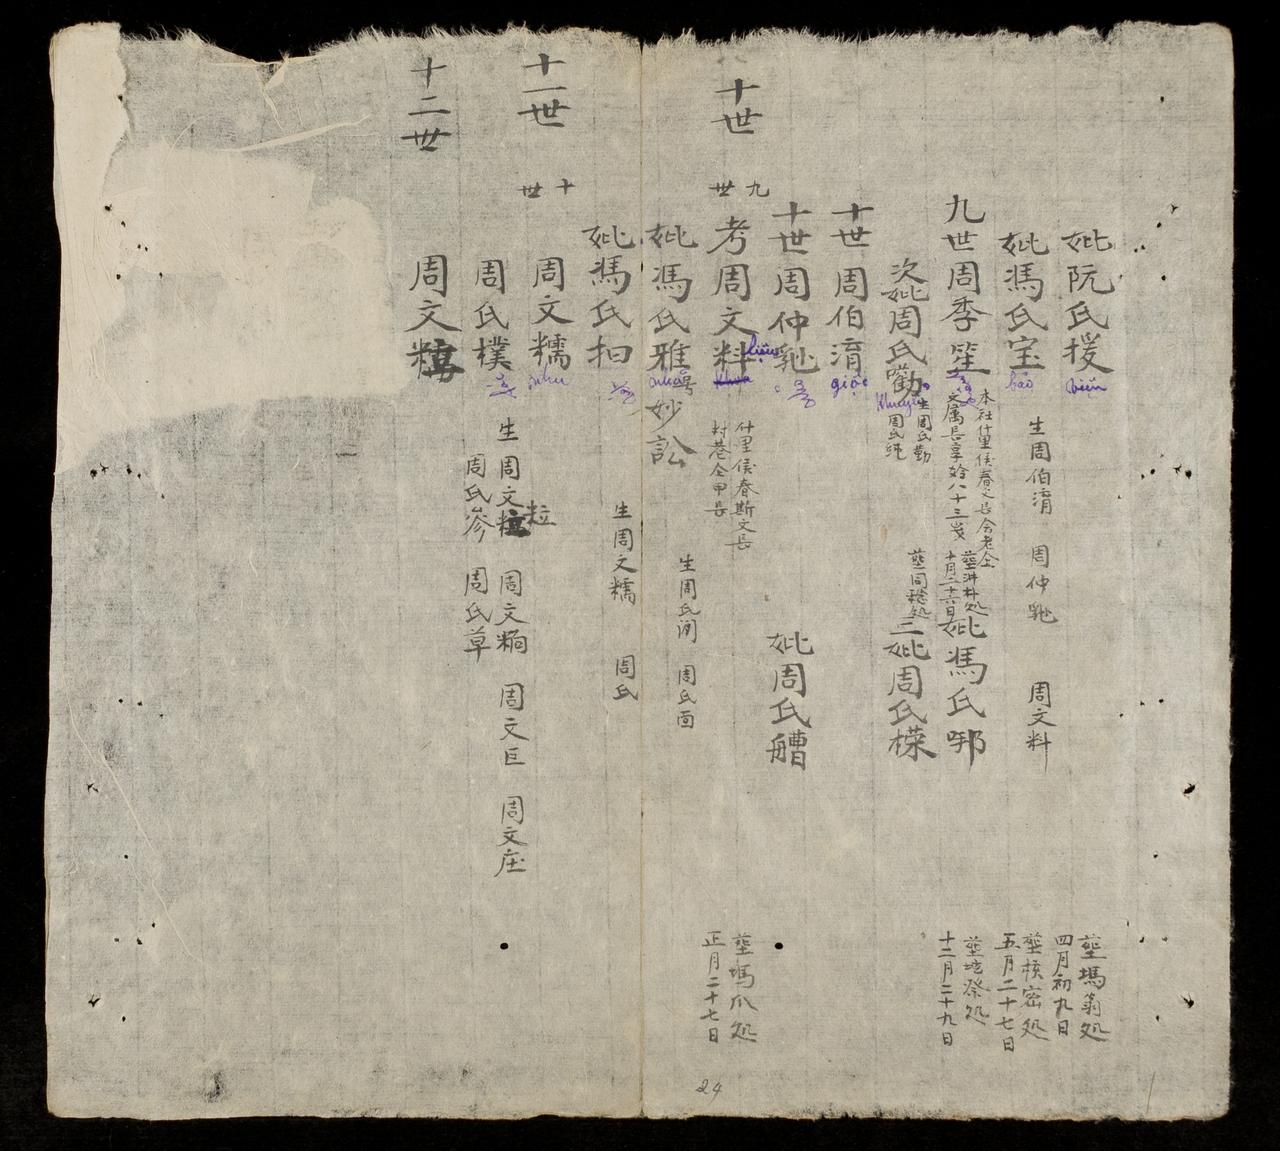 妣阮氏援
viện
塟塢翁処
四月初九日
妣馮氏宝
bảo
生周伯淯 周仲 周文料
塟核密処
五月二十七日
九世周季笙
本社什里侯春文長会老仝
文属長享岭八十三歲
塟洴林処
十月二十六日
妣馮氏㖿
塟圪祭処
十二月二十九日
次妣周氏勸
khuyến
生周氏勤
周氏純
塟同穏処
三妣周氏樣
十世周伯淯
giộc
十世周仲
妣周氏艚
十世
九世
考周文料
liệu
什里侯春斯文長
村巷仝甲長
塟塢爪処
正月二十七日
妣馮氏雅号妙訟
nhã
生周氏 周氏面
妣馮氏扣
生周文糯 周氏
十一世
十世
周文糯
nhu
周氏樸
生周文粒 粒 周文 周文巨 周文庄
周氏岑 周氏草
十二世
周文
24